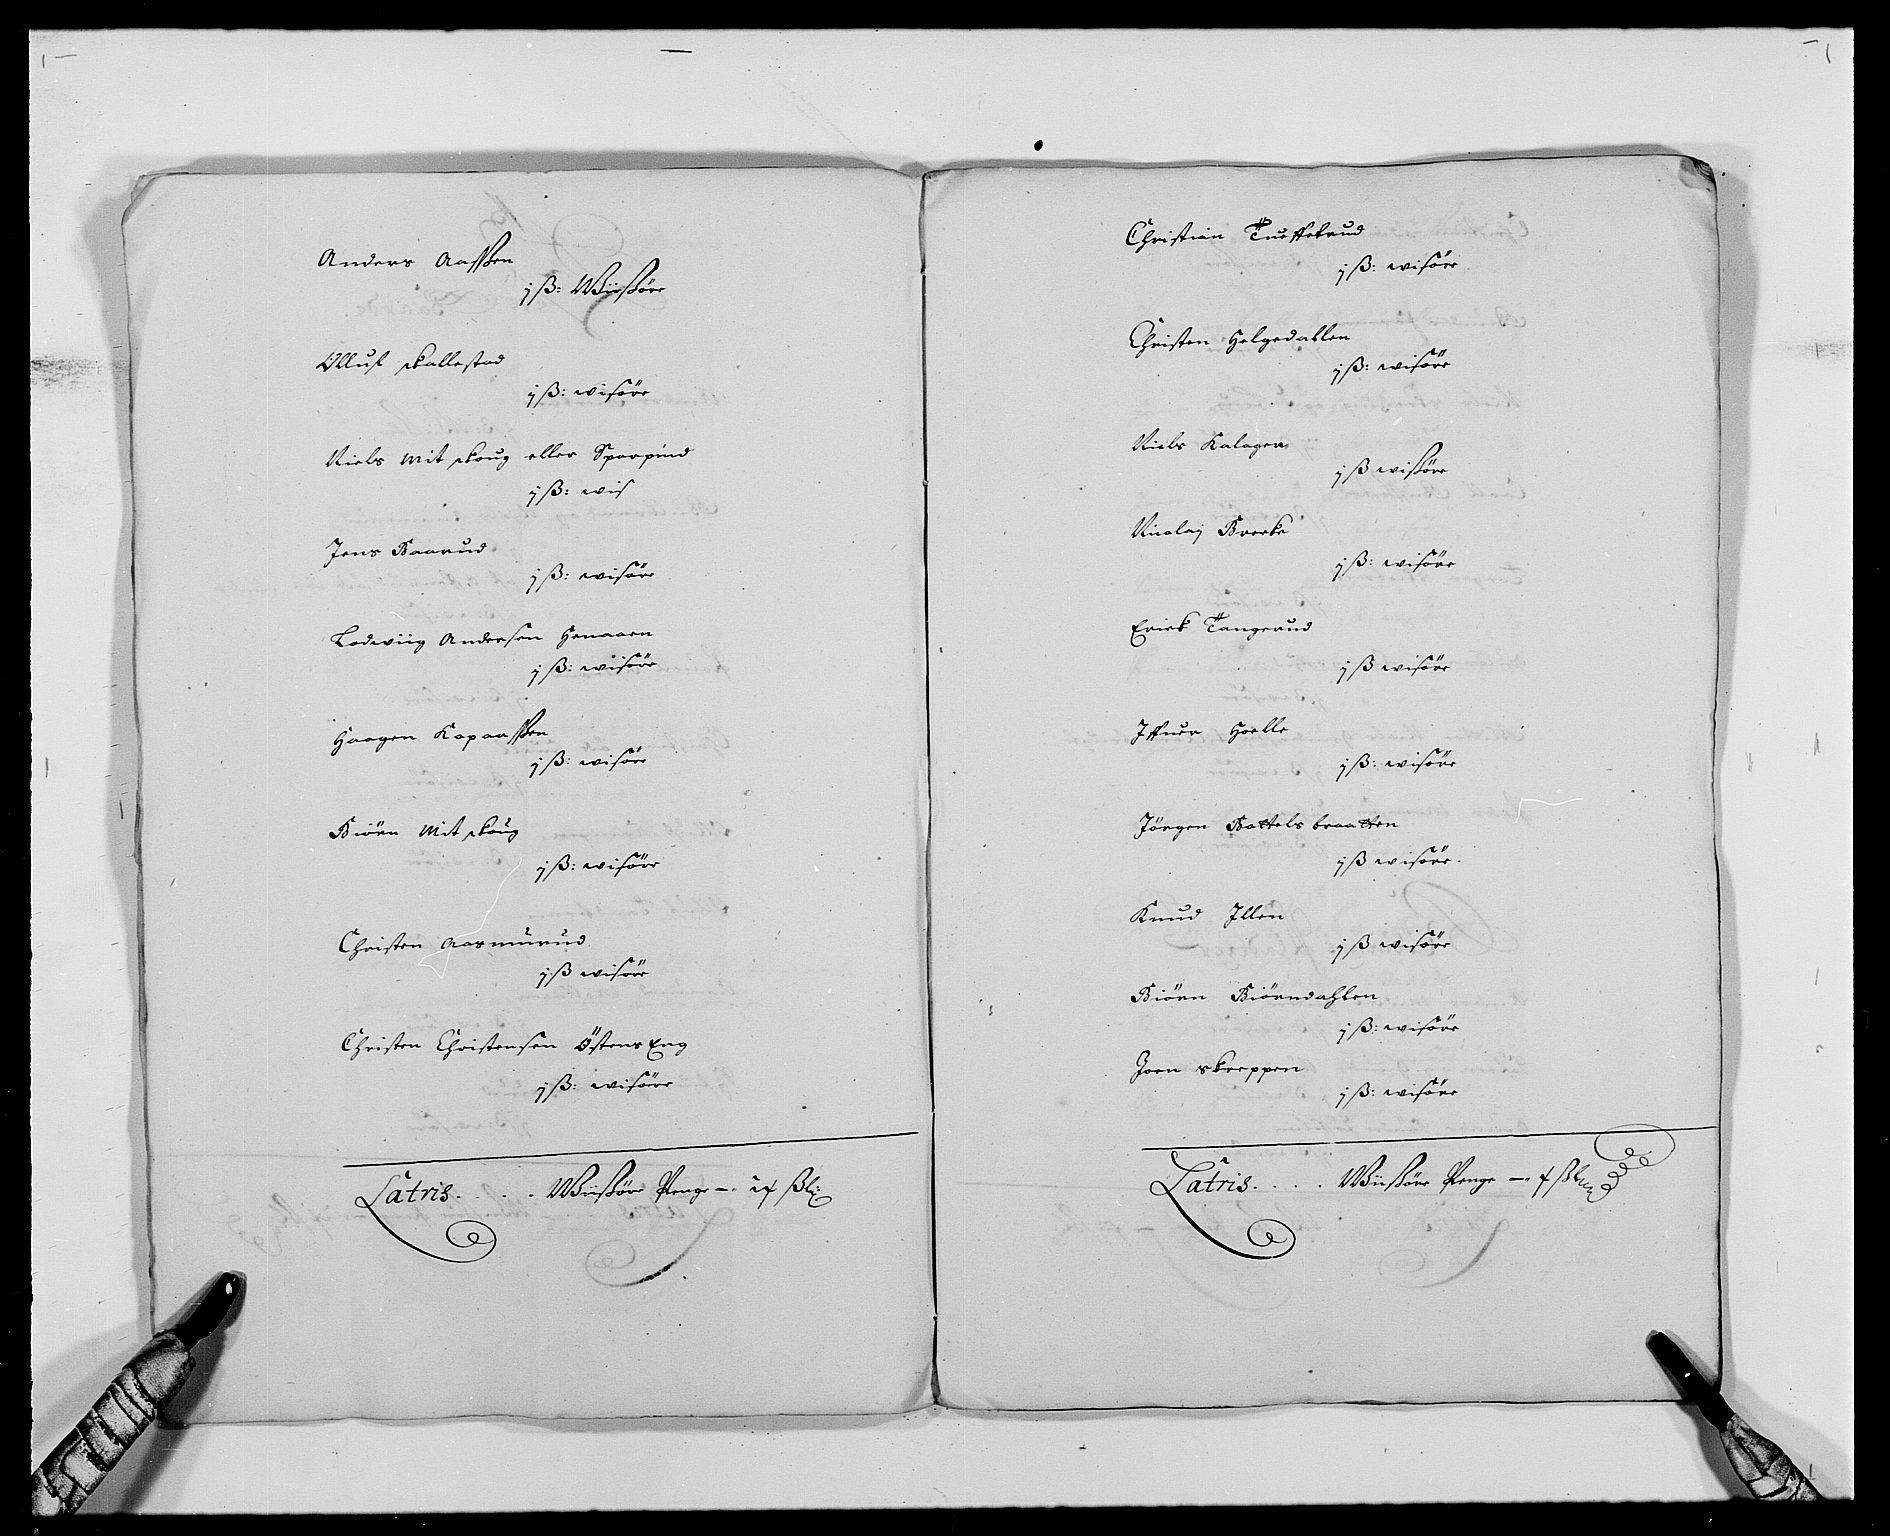 Anders Aassen
j ß: Wiisøre
Olluf skallestad
j ß: wisøre
Niels Mit skoug eller Sporpind
j ß: wis
Jens Baarud
j ß: wisøre
Lodwiig Andersen Henaaen
j ß: wisøre
Haagen Kopaassen
j ß: wisøre
Biørn Mit skoug
j ß: wisøre
Christen Aasmùrud
j ß wisøre
Christen Christensen ÖstensEng
j ß: wisøre
Latris. . . . . Wiisøre Penge —
Christian Tueffetrud
j ß: wisøre
Christen Helgedallen
j ß: wisøre
Niels Kalager
j ß wisøre
Nicolaj Brecke
j ß: wisøre
Erick Tangerud
j ß wisøre
Iffuer Hoelle
j ß: wisøre
Jørgen Bottels braatten
j ß wisøre.
Knud Illen
j ß wisøre
Biørn Biørndahlen
j ß: wisøre
Joen skreppen
j ß: wisøre
Latris. . . . . Wiisøre Penge —